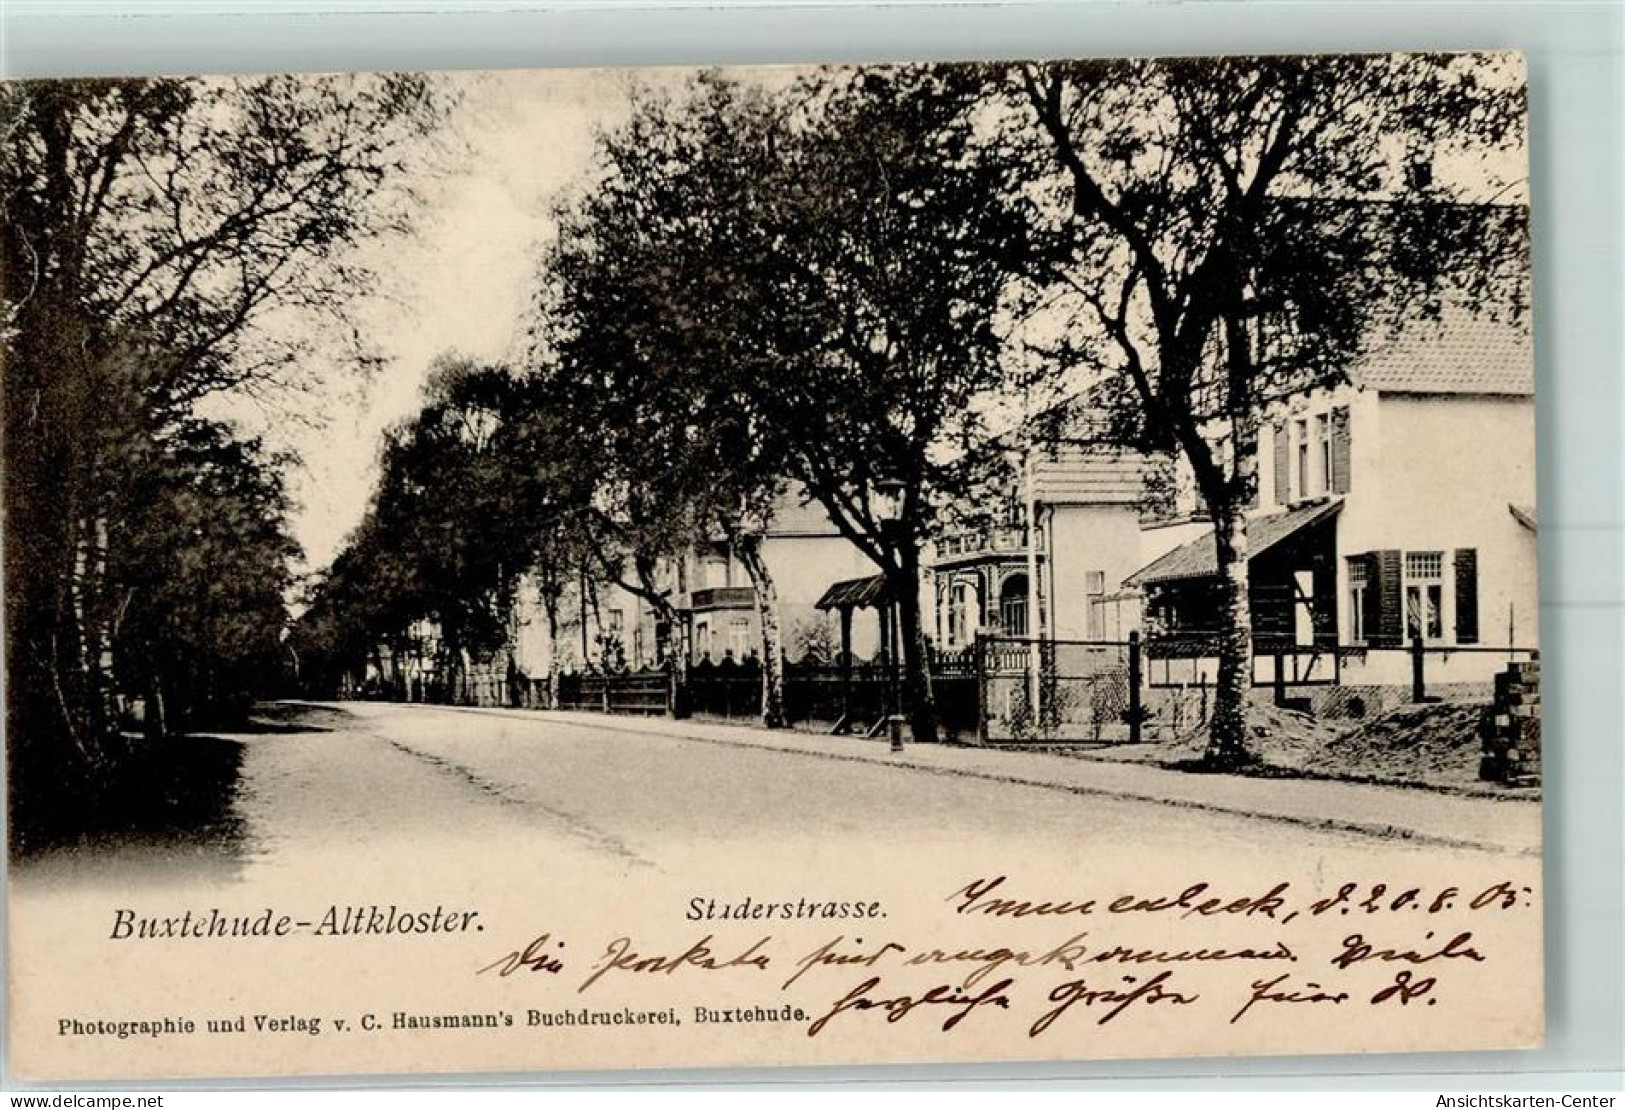 Buxtehude-Altkloster.
Staderstrasse.
Immenbeck, d. 20. 8. 05.
Die Pakete sind angekommen. Viele
herzliche Grüße
Photographie und Verlag v. C. Hausmann's Buchdruckerei, Buxtehude.
www.delcampe.net
Ansichtskarten-Center